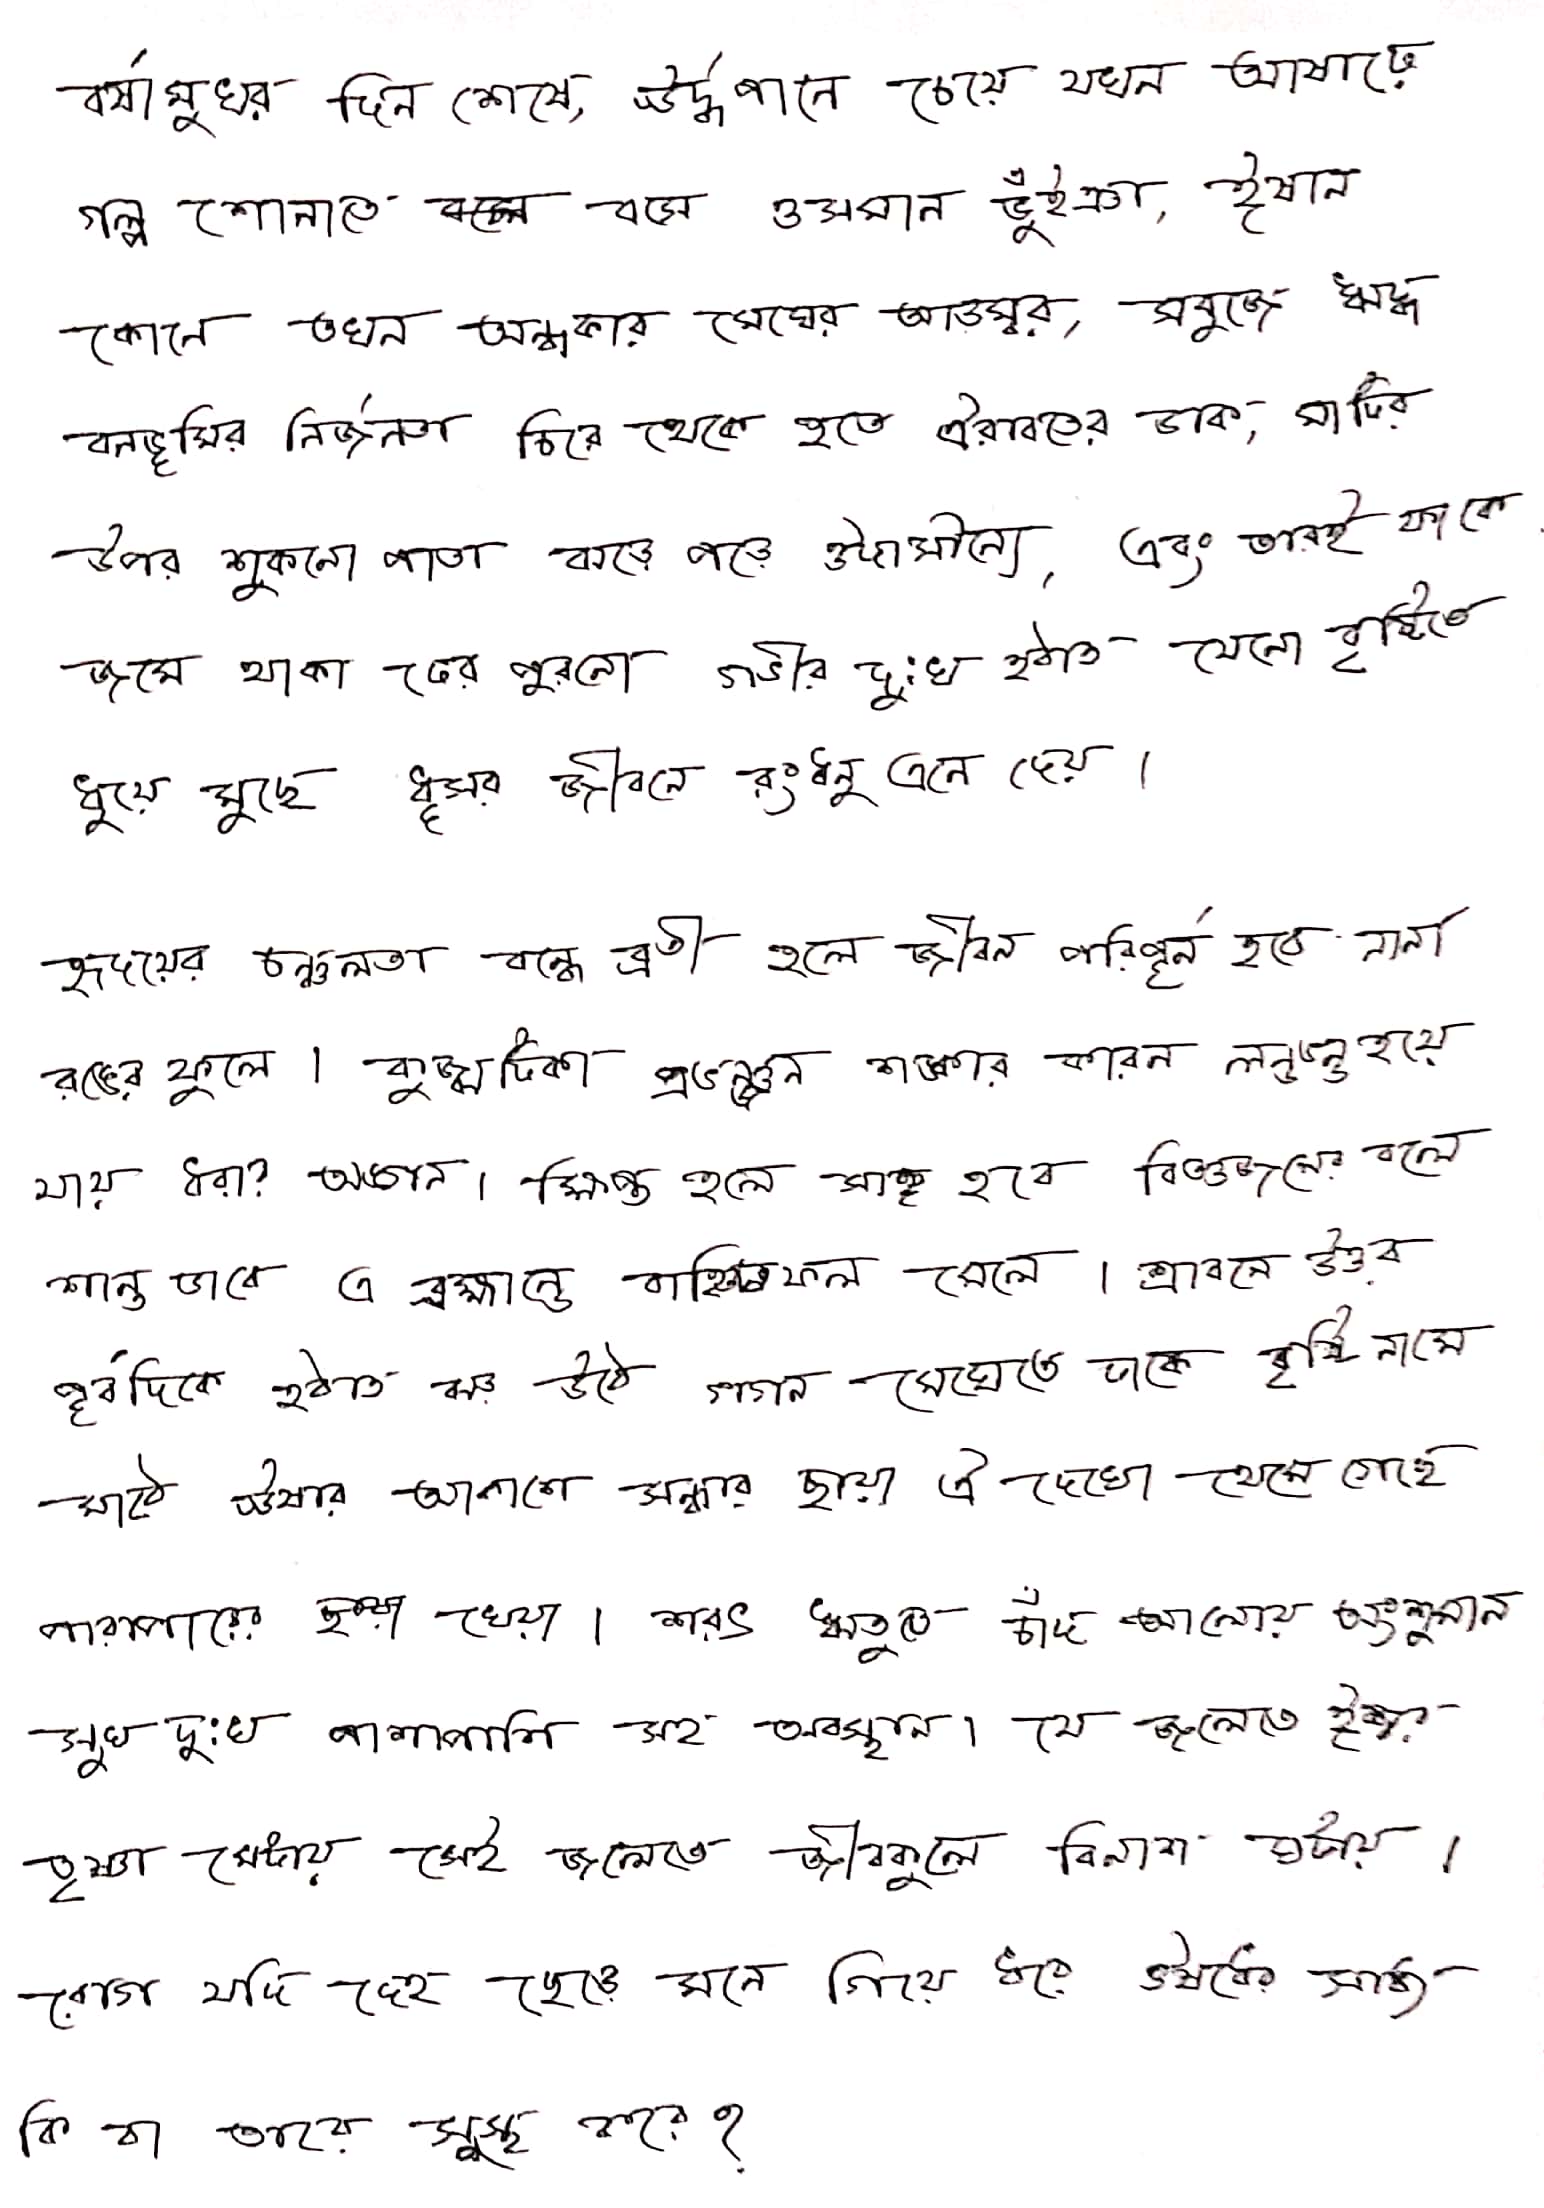 বর্ষামুখর দিন শেষে, ঊর্দ্ধপানে চেয়ে যখন আষাঢ়ে
গল্প শোনাতে বসে ওসমান ভুঁইঞা, ঈষান
কোনে তখন অন্ধকার মেঘের আড়ম্বর, সবুজে ঋদ্ধ
বনভূমির নির্জনতা চিরে থেকে হতে ঐরাবতের ডাক, মাটির
উপর শুকনো পাতা ঝড়ে পড়ে ঔদাসীন্যে, এবং তারই ফাকে
জমে থাকা ঢের পুরনো গভীর দুঃখ হঠাত যেনো বৃষ্টিতে
ধুয়ে মুছে ধূসর জীবনে রংধনু এনে দেয়।
হৃদয়ের চঞ্চলতা বন্ধে ব্রতী হলে জীবন পরিপূর্ন হবে নানা
রঙের ফুলে। কুজ্ঝটিকা প্রভঞ্জন শঙ্কার কারন লন্ডভন্ড হয়ে
যায় ধরা? অঙ্গন। ক্ষিপ্ত হলে সাঙ্গ হবে বিজ্ঞজনে বলে
শান্ত ভাবে এ ব্রহ্মান্ডে বাঞ্ছিতফল মেলে। শ্রাবনে উত্তর
পূর্বদিকে হঠাত ঝড় উঠে গগন মেঘেতে ঢাকে বৃষ্টি নামে
মাঠে ঊষার আকাশে সন্ধ্যার ছায়া ঐ দেখো থেমে গেছে
পারাপারের খেয়া। শরৎ ঋতুতে চাঁদ আলোয় অংশুমান
সুখ দুঃখ পাশাপাশি সহ অবস্থান। যে জলেতে ঈশ্বর
তৃষ্ণা মেটায় সেই জলেতে জীবকুলে বিনাশ ঘটায়।
রোগ যদি দেহ ছেড়ে মনে গিয়ে ধরে ঔষধের সাধ্য
কি বা তারে সুস্থ করে?